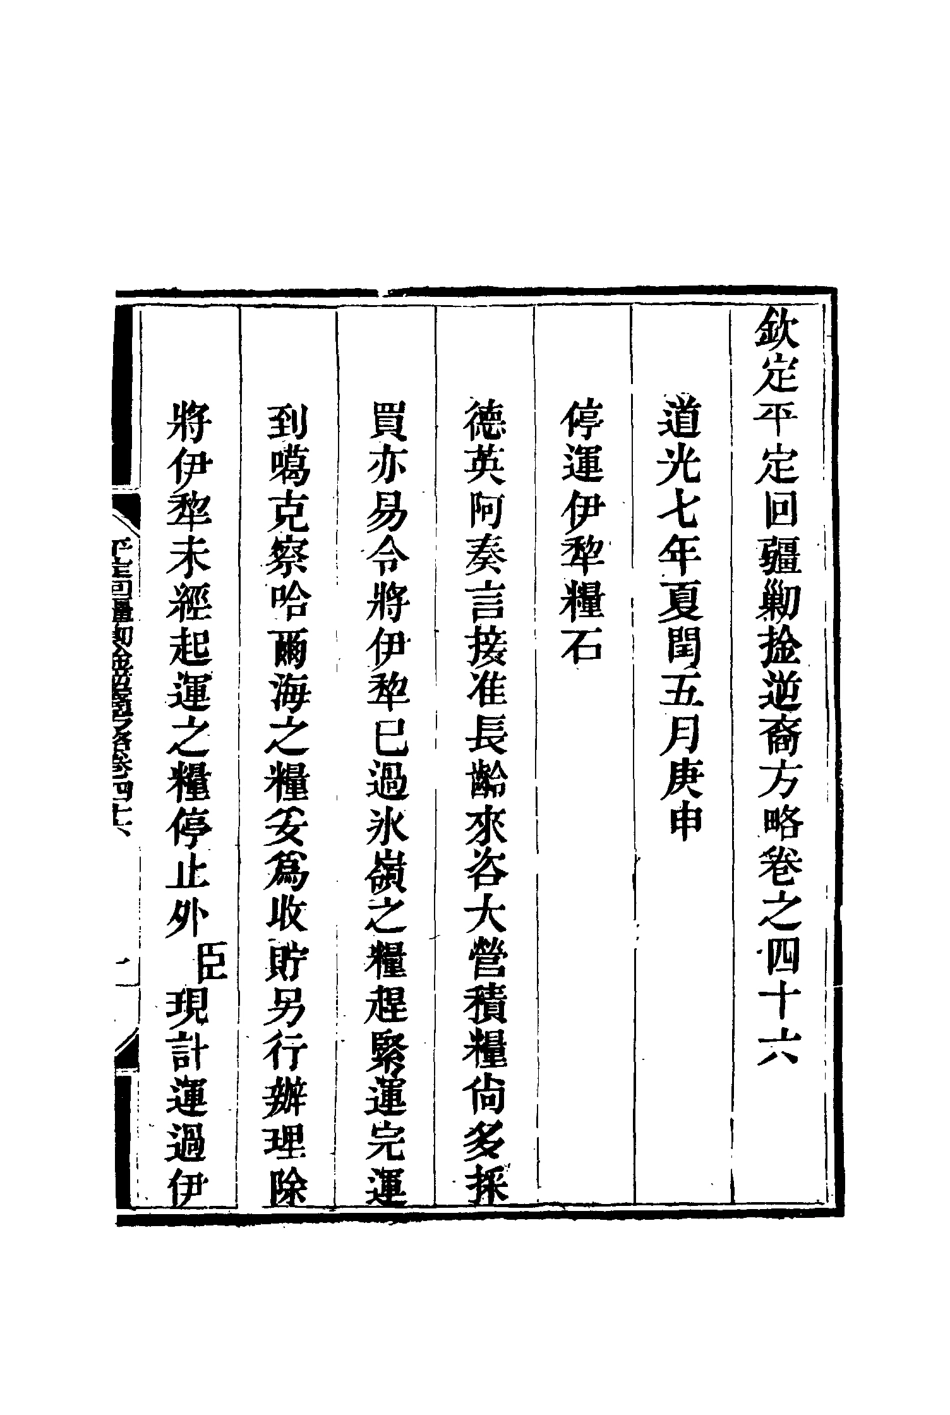 欽定平定回疆勦捡逆裔方略卷之四十六
道光七年夏閏五月庚申
停運伊犂糧石
德英阿奏言接准長齡來咨大營積糧尙多採
買亦易令將伊犂已過氷嶺之糧趕緊運完運
到噶克察哈爾海之糧妥爲收貯另行辦理除
將伊犂未經起運之糧停止外臣現計運過伊